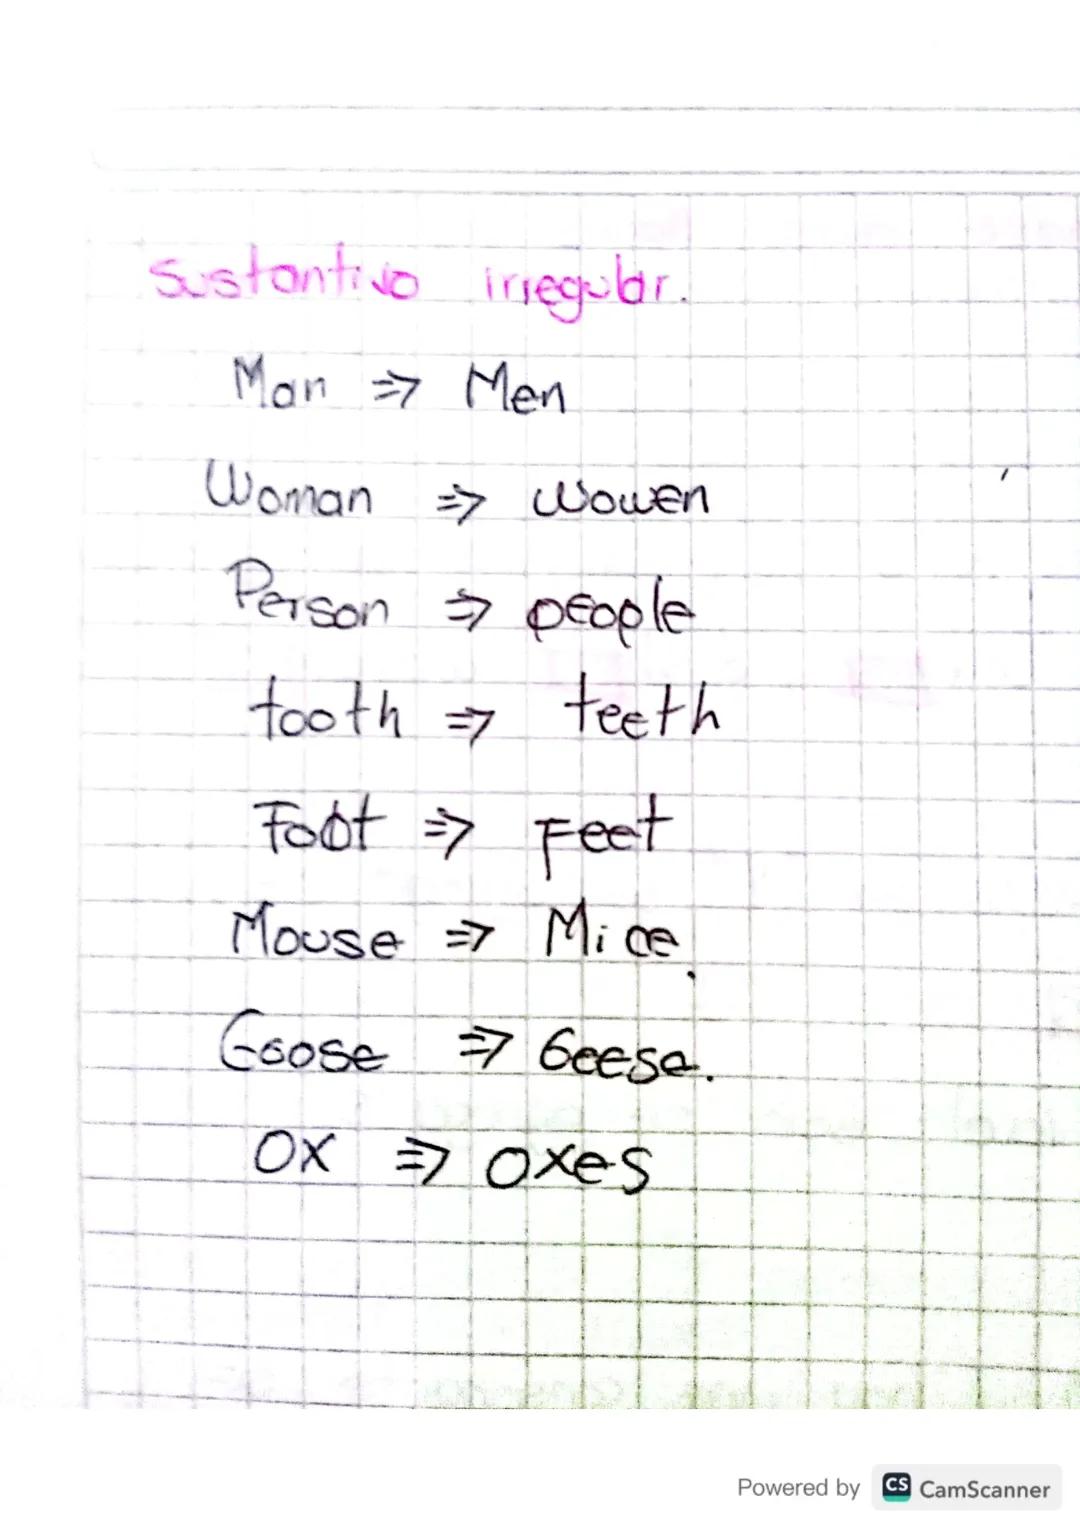 Sustantivo irregular.
Man => Men
Woman => wowen
Person => people
tooth => teeth
Foot => Feet
Mouse => Mice.
Goose => Geese.
OX => oxes
Powered by CS CamScanner